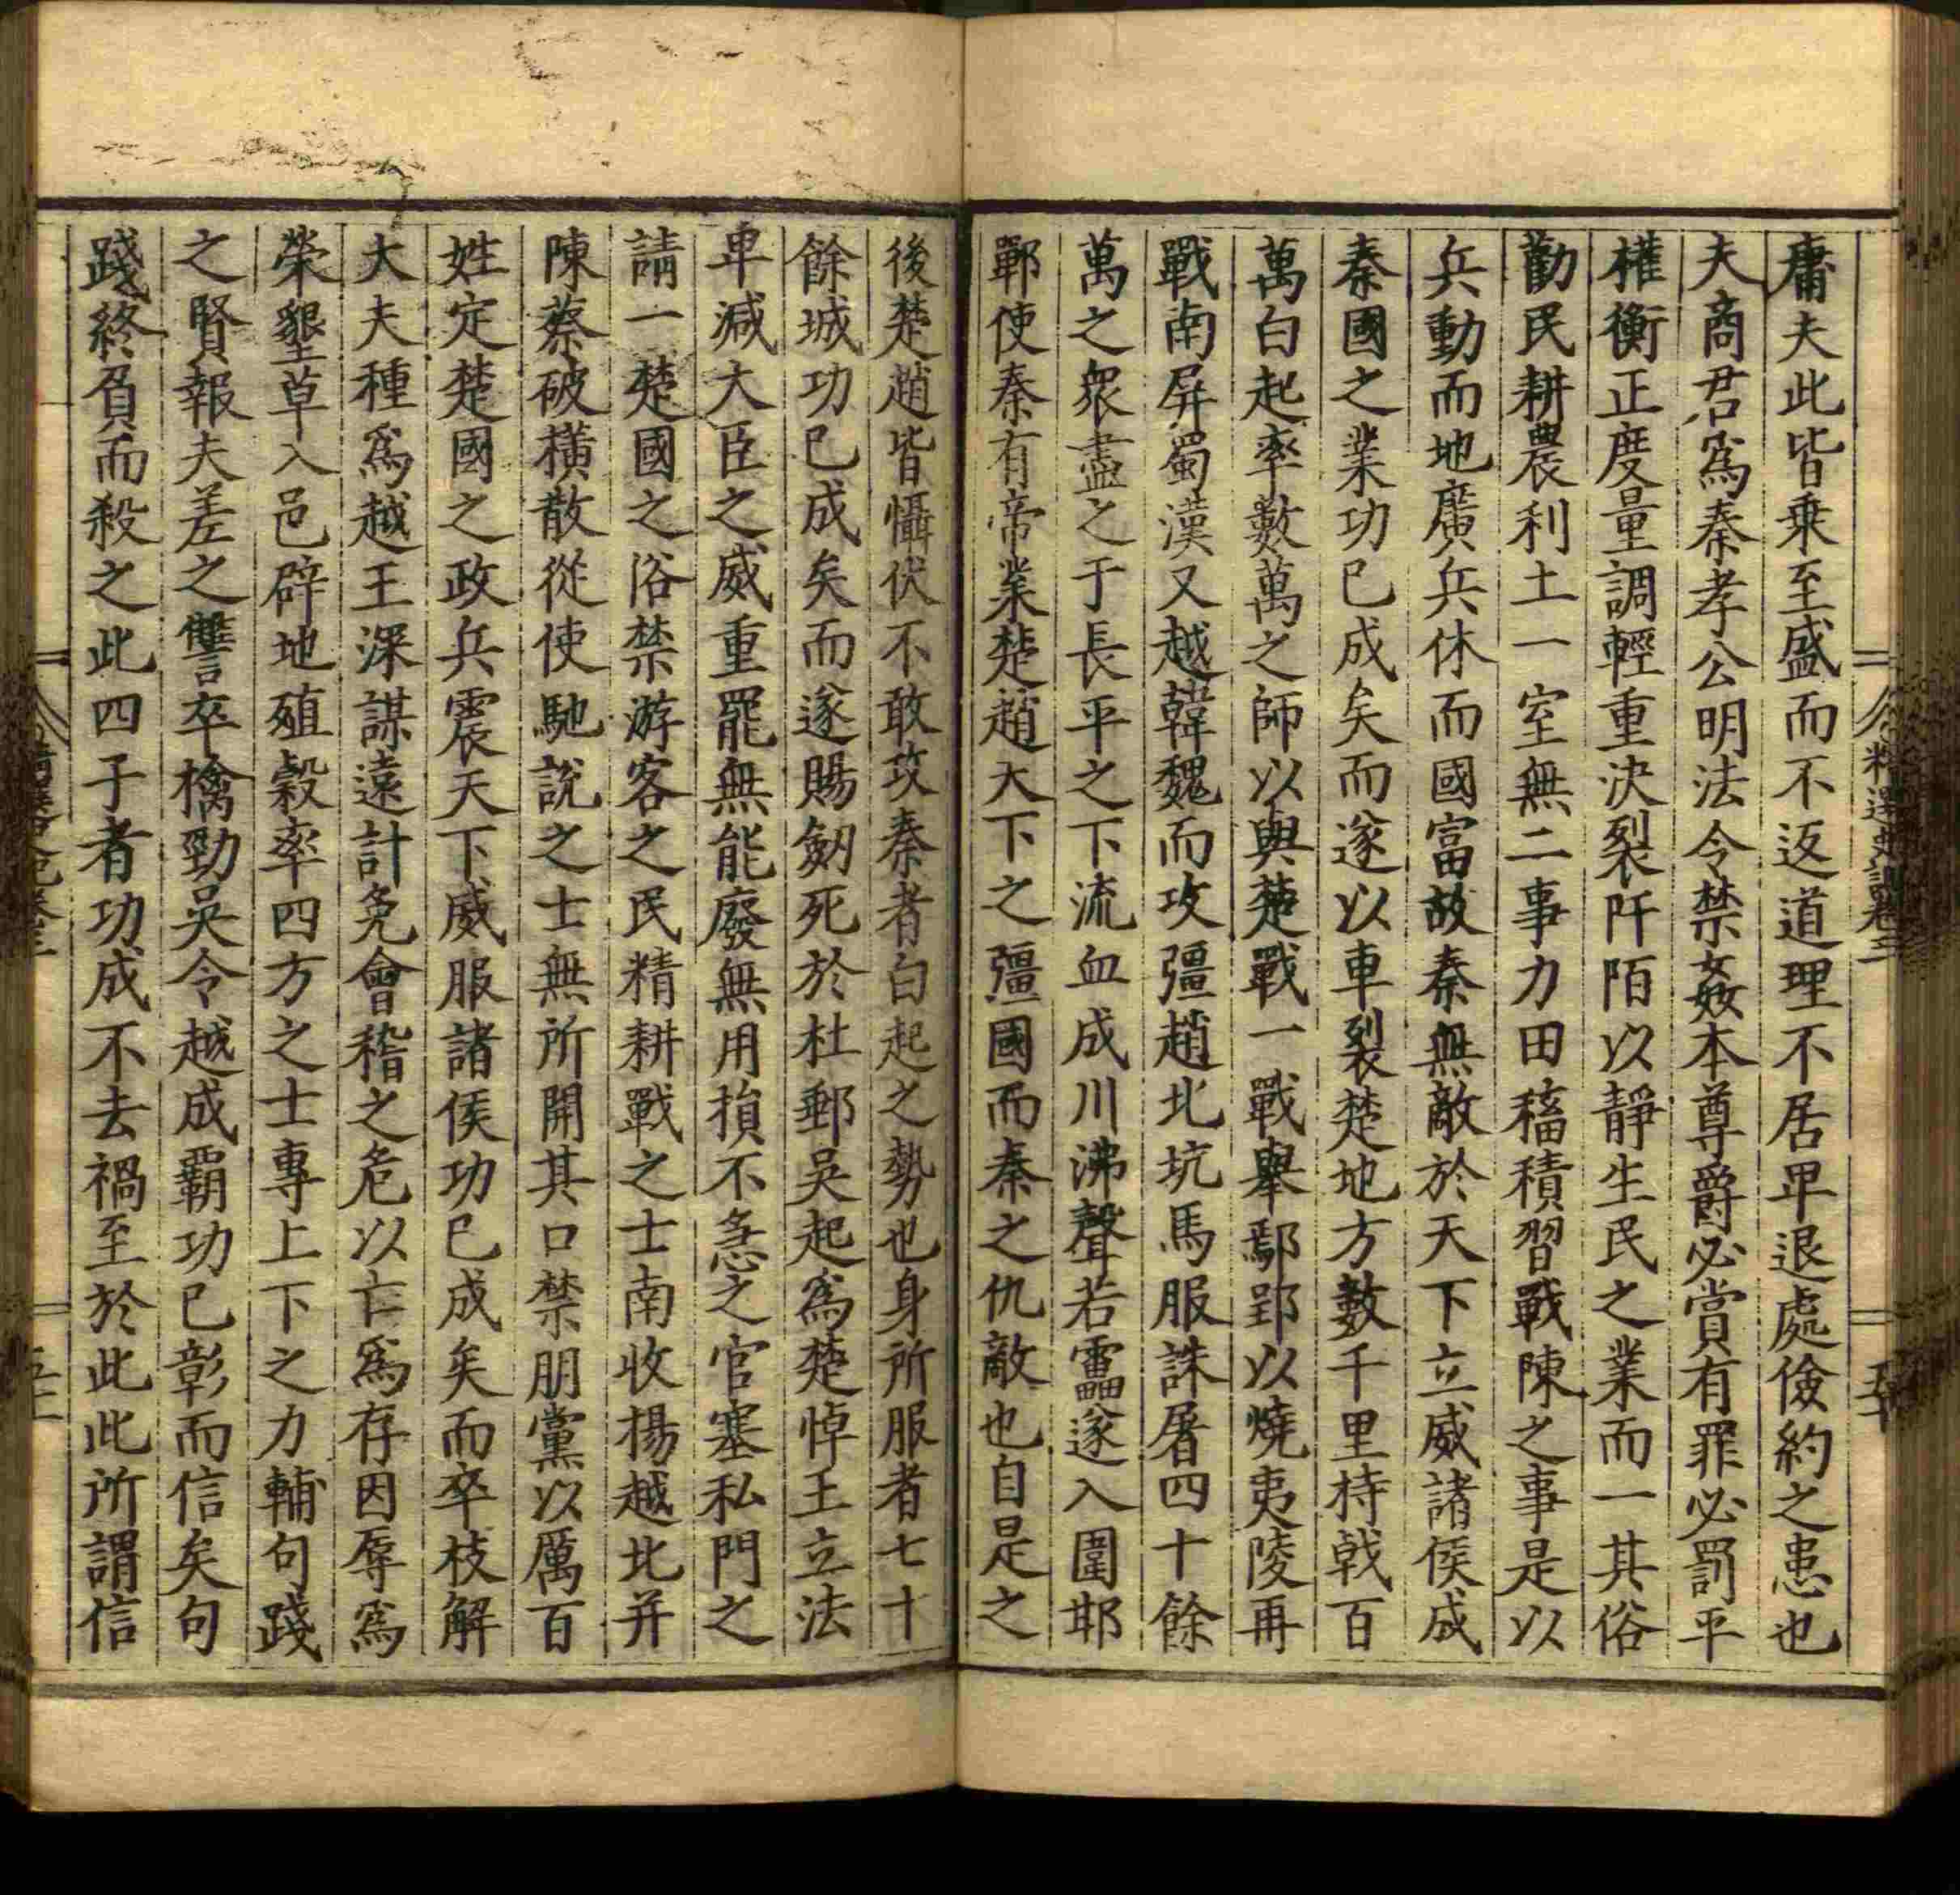 精選史記卷三
五十
庸夫此皆乗至盛而不返道理不居卑退處儉約之患也
夫商君爲秦孝公明法令禁姦本尊爵必賞有罪必罰平
權衡正度量調輕重決裂阡陌以靜生民之業而一其俗
勸民耕農利土一室無二事力田稸積習戰陳之事是以
兵動而地廣兵休而國富故秦無敵於天下立威諸侯成
秦國之業功已成矣而遂以車裂楚地方數千里持戟百
萬白起率數萬之師以與楚戰一戰舉鄢郢以燒夷陵再
戰南屏蜀漢又越韓魏而攻彊趙北坑馬服誅屠四十餘
萬之衆盡之于長平之下流血成川沸聲若靁遂入圍邯
鄲使秦有帝業楚趙天下之彊國而秦之仇敵也自是之
後楚趙皆懾伏不敢攻秦者白起之勢也身所服者七十
餘城功已成矣而遂賜劒死於杜郵吳起爲楚悼王立法
卑減大臣之威重罷無能廢無用損不急之官塞私門之
請一楚國之俗禁游客之民精耕戰之士南收揚越北并
陳蔡破橫散從使馳說之士無所開其口禁朋黨以厲百
姓定楚國之政兵震天下威服諸侯功已成矣而卒枝解
大夫種爲越王深謀遠計免會稽之危以亡爲存因辱爲
榮墾草入邑辟地殖榖率四方之士專上下之力輔句踐
之賢報夫差之讐卒擒勁吳令越成霸功已彰而信矣句
踐終負而殺之此四子者功成不去禍至於此此所謂信